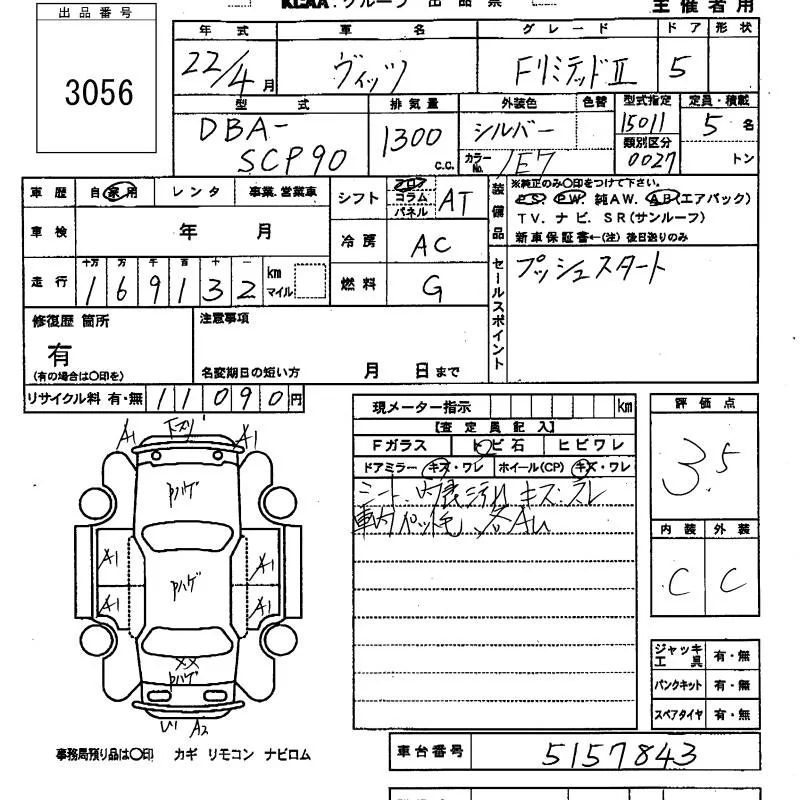 出品番号
KCAA.グループ 出品票
主催者用
3056
年式 車名 グレード ドア 形状
22/4月 ヴィッツ FリミテッドⅡ 5
型式 排気量 外装色 色替 型式指定 定員・積載
DBA-SCP90 1300 c.c. シルバー 15011 5名
カラーNo. 1E7 類別区分 0027 トン
車歴 自家用 レンタ 事業.営業車
シフト フロア コラム パネル AT
装備品 ※純正のみ〇印をつけて下さい。
P.S. P.W. 純AW. AB(エアバック)
T.V. ナビ. SR(サンルーフ)
新車保証書←(注)後日送りのみ
車検 年 月
冷房 AC
走行 十万 万 千 百 十 一 km マイル
169132
燃料 G
セールスポイント プッシュスタート
修復歴 箇所
有
(有の場合は〇印を)
注意事項
名変期日の短い方 月 日まで
リサイクル料 有・無 11090円
現メーター指示 km
【査定員記入】
Fガラス トビ石 ヒビワレ
ドアミラー キズ・ワレ ホイール(CP) キズ・ワレ
シート、内張汚れ キズ・スレ
評価点
3.5
内装 外装
C C
A1 下スリ A1
Pハゲ
A1 A1
Pハゲ
A1 A1
XX
Pハゲ
U1 A2
ジャッキ工具 有・無
パンクキット 有・無
スペアタイヤ 有・無
事務局預り品は〇印 カギ リモコン ナビロム
車台番号 5157843